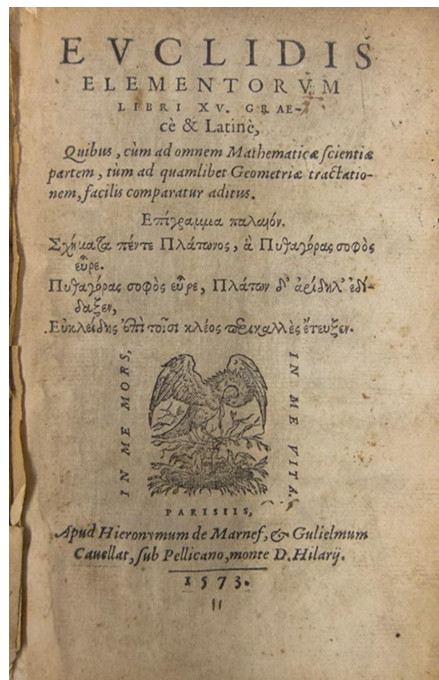 EVCLIDIS
ELEMENTORVM
LIBRI XV. GRAE-
cè & Latinè,
Quibus, cùm ad omnem Mathematicæ scientiæ
partem, tùm ad quamlibet Geometriæ tractatio-
nem, facilis comparatur aditus.
Επίγραμμα παλαιόν.
Σχήματα πέντε Πλάτωνος, ἃ Πυθαγόρας σοφὸς
εὗρε.
Πυθαγόρας σοφὸς εὗρε, Πλάτων δ' ἀρίδηλ' ἐδί-
δαξεν,
Εὐκλείδης ἐπὶ τοῖσι κλέος περικαλλὲς ἔτευξεν.
IN ME MORS,
IN ME VITA.
PARISIIS,
Apud Hieronymum de Marnef, & Gulielmum
Cauellat, sub Pellicano, monte D. Hilarij.
1573.